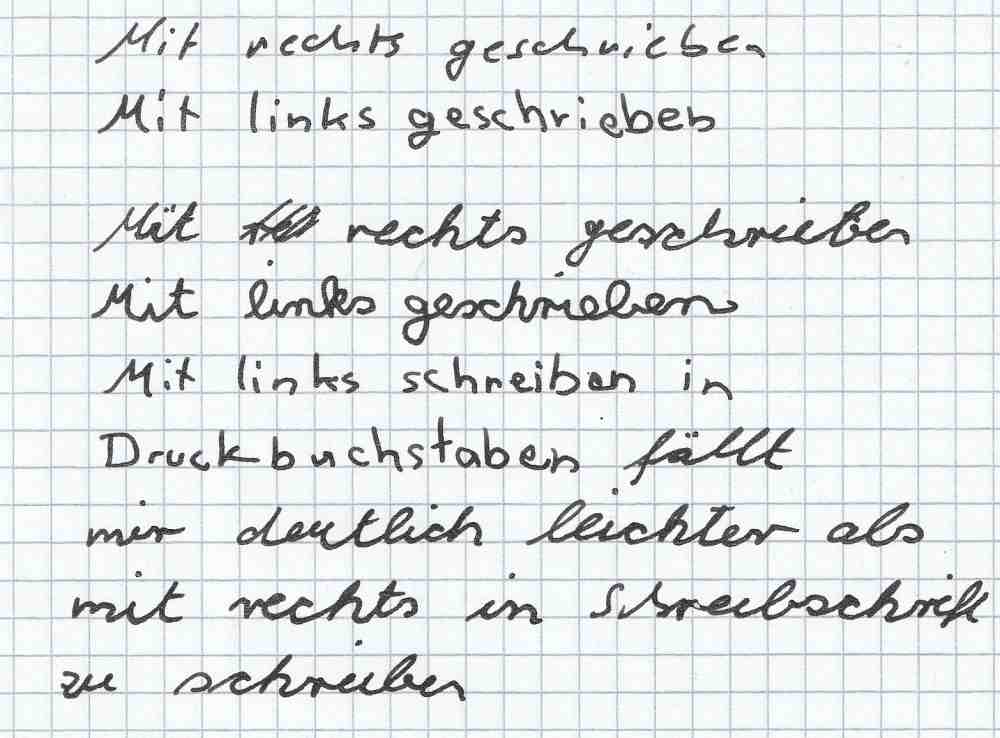 Mit rechts geschrieben
Mit links geschrieben
Mit rechts geschrieben
Mit links geschrieben
Mit links schreiben in
Druckbuchstaben fällt
mir deutlich leichter als
mit rechts in Schreibschrift
zu schreiben